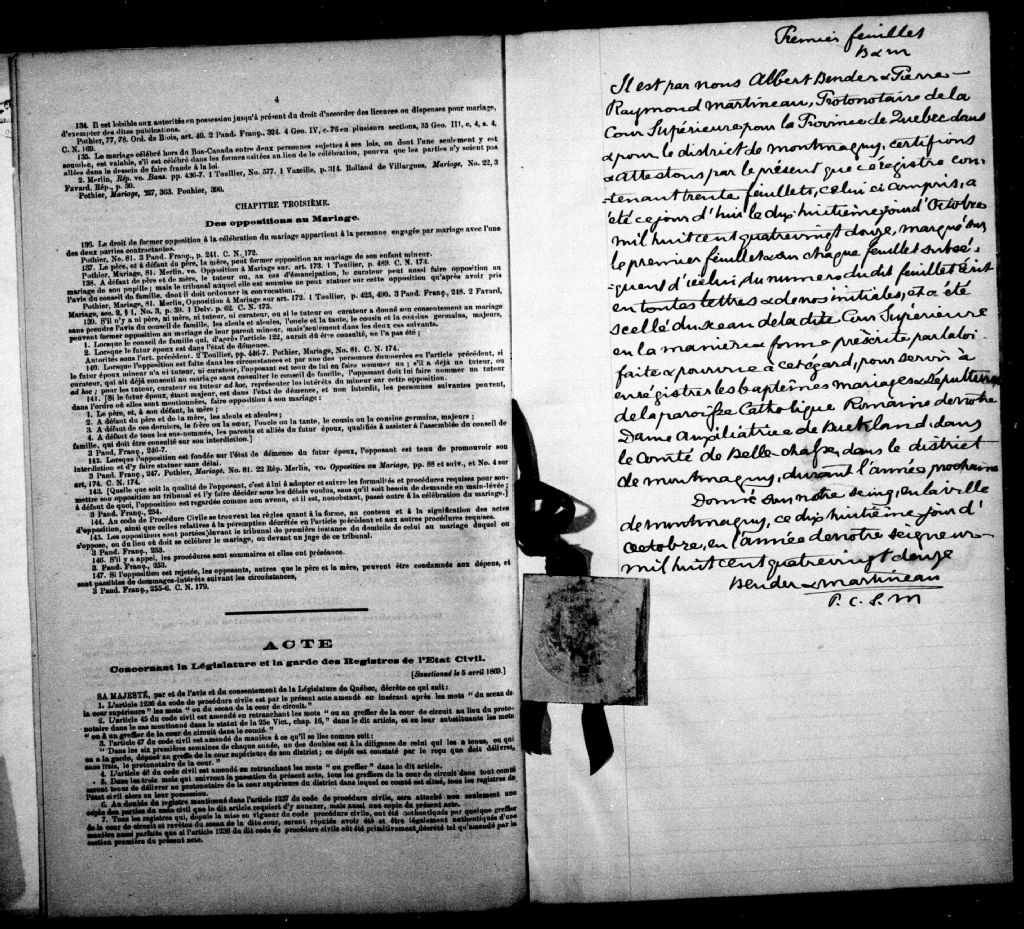 4
134. Il est loisible aux autorités en possession jusqu'à présent du droit d'accorder des licences ou dispenses pour mariage,
d'exempter des dites publications.
Pothier, 77, 78. Ord. de Blois, art. 40. 2 Pand. Franç., 324. 4 Geo. IV, c. 76 en plusieurs sections, 35 Geo. III, c, 4, s. 4,
C. N. 169.
135. Le mariage célébré hors du Bas-Canada entre deux personnes sujettes à ses lois, ou dont l'une seulement y est
soumise, est valable, s'il est célébré dans les formes usitées au lieu de la célébration, pourvu que les parties n'y soient pas
allées dans le dessein de faire fraude à la loi.
2. Merlin, Rép. vo. Bans. pp. 436-7. 1 Toullier, No. 577. 1 Vazeille, p. 314. Rolland de Villargues, Mariage, No. 22, 3
Favard, Rép., p. 39.
Pothier, Mariage, 327, 363. Pouhier, 390.
CHAPITRE TROISIÈME.
Des oppositions au Mariage.
136. Le droit de former opposition à la célébration du mariage appartient à la personne engagée par mariage avec l'une
des deux parties contractantes.
Pothier, No. 81. 3 Pand. Franç., p. 241. C. N. 172.
137. Le père, et à défaut du père, la mère, peut former opposition au mariage de son enfant mineur.
Pothier, Mariage, 81. Merlin. vo. Opposition au Mariage sur art. 173. 1 Toullier, p. 489. C. N. 173.
138. A défaut de père et de mère, le tuteur ou, au cas d'émancipation, le curateur peut aussi faire opposition au
mariage de son pupille; mais le tribunal auquel elle est soumise ne peut statuer sur cette opposition qu'après avoir pris
l'avis du conseil de famille, dont il doit ordonner la convocation.
Pothier, Mariage, 81. Merlin, Opposition à Mariage sur art. 172. 1 Toullier, p. 425, 490. 3 Pand. Franç., 248. 2 Favard,
Mariage, sec. 2, § 1, No. 3, p. 59. 1 Delv. p. 62. C. N. 175.
139. S'il n'y a ni père, ni mère, ni tuteur, ni curateur, ou si le tuteur ou curateur a donné son consentement au mariage
sans prendre l'avis du conseil de famille, les aïeuls et aïeules, l'oncle et la tante, le cousin et la cousine germains, majeurs,
peuvent former opposition au mariage de leur parent mineur, mais seulement dans les deux cas suivants.
1. Lorsque le conseil de famille qui, d'après l'article 122, aurait dû être consulté, ne l'a pas été;
2. Lorsque le futur époux est dans l'état de démence.
Autorités sous l'art. précédent. 2 Toullier, pp. 446-7. Pothier, Mariage, No. 81. C. N. 174.
140. Lorsque l'opposition est faite dans les circonstances et par une des personnes énumérées en l'article précédent, si
le futur époux mineur n'a ni tuteur, ni curateur, l'opposant est tenu de lui en faire nommer un; s'il a déjà un tuteur, ou
curateur, qui ait déjà consenti au mariage sans consulter le conseil de famille, l'opposant doit lui faire nommer un tuteur
ad hoc; pour les tuteur, curateur ou tuteur ad hoc, représenter les intérêts du mineur sur cette opposition.
141. [Si le futur époux, étant majeur, est dans l'état de démence, et non interdit, les personnes suivantes peuvent,
dans l'ordre où elles sont mentionnées, faire opposition à son mariage:
1. Le père, et, à son défaut, la mère;
2. A défaut du père et de la mère, les aïeuls et aïeules;
3. A défaut de ces derniers, le frère ou la sœur, l'oncle ou la tante, le cousin ou la cousine germains, majeurs;
4. A défaut de tous les sus-nommés, les parents et alliés du futur époux, qualifiés à assister à l'assemblée du conseil de
famille, qui doit être consulté sur son interdiction.]
3 Pand. Franç., 246-7.
142. Lorsque l'opposition est fondée sur l'état de démence du futur époux, l'opposant est tenu de promouvoir son
interdiction et d'y faire statuer sans délai.
3 Pand. Franç., 247. Pothier, Mariage. No. 81. 22 Rép. Merlin, vo. Opposition au Mariage, pp. 88 et suiv., et No. 4 sur
art. 174. C. N. 174.
143. [Quelle que soit la qualité de l'opposant, c'est à lui à adopter et suivre les formalités et procédures requises pour sou-
mettre son opposition au tribunal et l'y faire décider sous les délais voulus, sans qu'il soit besoin de demande en main-lévée;
à défaut de quoi, l'opposition est regardée comme non avenu, et il est, nonobstant, passé outre à la célébration du mariage.]
3 Pand. Franç., 254.
144. Au code de Procédure Civile se trouvent les règles quant à la forme, au contenu et à la signification des actes
d'opposition, ainsi que celles relatives à la péremption décrétée en l'article précédent et aux autres procédures requises.
145. Les oppositions sont portées devant le tribunal de première instance du domicile de celui au mariage duquel on
s'oppose, ou du lieu où doit se célébrer le mariage, ou devant un juge de ce tribunal.
3 Pand. Franç., 253.
146. S'il y a appel, les procédures sont sommaires et elles ont préséance.
3. Pand. Franç., 253.
147. Si l'opposition est rejetée, les opposants, autres que le père et la mère, peuvent être condamnés aux dépens, et
sont passibles de dommages-intérêts suivant les circonstances,
3 Pand. Franç., 255-6. C. N. 179.
ACTE
Concernant la Législature et la garde des Registres de l'Etat Civil.
[Sanctionné le 5 avril 1869.]
SA MAJESTÉ, par et de l'avis et du consentement de la Législature de Québec, décrète ce qui suit:
1. L'article 1236 du code de procédure civile est par le présent acte amendé en insérant après les mots "du sceau de
la cour supérieure" les mots "ou du sceau de la cour de circuit."
2. L'article 45 du code civil est amendé en retranchant les mots "ou au greffier de la cour de circuit au lieu du proto-
notaire dans le cas mentionné dans le statut de la 25e Vict., chap. 16," dans le dit article, et en leur substituants les mots
"ou à un greffier de la cour de circuit dans le comté."
3. l'article 47 du code civil est amendé de manière à ce qu'il se lise comme suit:
"Dans les six premières semaines de chaque année, un des doubles est à la diligence de celui qui les a tenus, ou qui
en a la garde, déposé au greffe de la cour supérieure de son district; ce dépôt est constaté par le reçu que doit délivrer,
sans frais, le protonotaire de la cour."
4. L'article 48 du code civil est amendé en retranchant les mots "ou greffier" dans le dit article.
5. Dans les trois mois qui suivront la passation du présent acte, tous les greffiers de la cour de circuit dans tout comté
seront tenus de délivrer au protonotaire de la cour supérieure du district dans lequel ce comté est situé, tous les registres de
l'état civil alors en leur possession.
6. Au double du registre mentionné dans l'article 1237 du code de procédure civile, sera attaché non seulement une
copie des parties du code civil que le dit article requiert d'y annexer, mais aussi une copie du présent acte.
7. Tous les registres qui, depuis la mise en vigueur du code procédure civile, ont été authentiqués par quelque greffier
de la cour de circuit et revêtus du sceau de la dite cour, seront réputés avoir été et être légalement authentiqués d'une
manière aussi parfaite que si l'article 1236 du dit code de procédure civile eût été primitivement décrété tel qu'amendé par la
section première du présent acte.
Premier feuillet
B & M
Il est par nous Albert Bender & Pierre-
Raymond Martineau, Protonotaire de la
Cour Supérieure pour la Province de Quebec dans
& pour le district de Montmagny, certifions
& attestons par le présent que ce registre con-
tenant trente feuillets, celui ci compris, a
été ce jour d'hui le dix-huitième jour d'Octobre
mil huit cent quatrevingt douze, marqué sur
le premier feuillet & sur chaque feuillet subsé-
quent d'icelui, du numero du dit feuillet écrit
en toutes lettres & de nos initiales, et a été
scellé du sceau de la dite Cour Superieure
en la maniere & forme prescrite par la loi
faite & pourvue à cet égard, pour servir à
enrégistrer les baptêmes mariages & sépultures
de la paroisse Catholique Romaine de Notre
Dame Auxiliatrice de Buckland, dans
le Comté de Bellechasse, dans le district
de Montmagny, durant l'année prochaine
Donné sous notre seing, en la ville
de Montmagny, ce dix huitième jour d'
Octobre, en l'année de notre seigneur
mil huit cent quatrevingt douze
Bender & Martineau
P. C. S. M